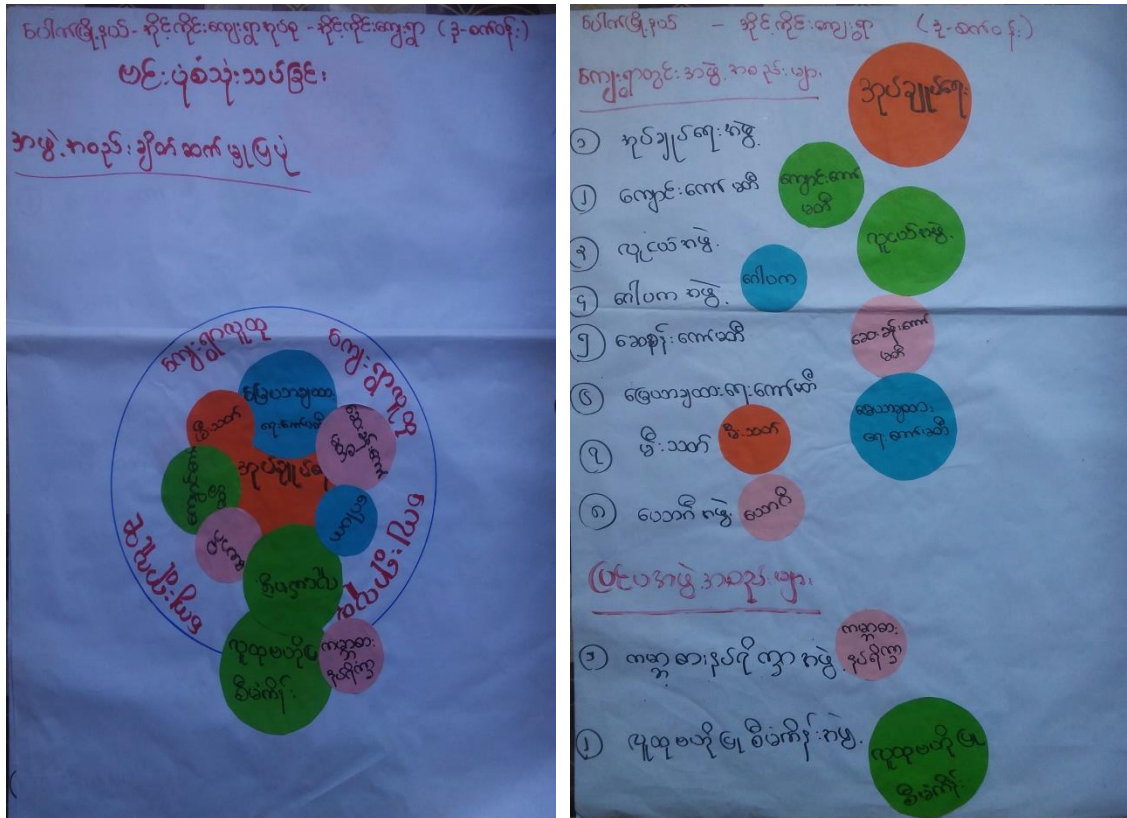 ပေါက်မြို့နယ် - အိုင့်ကိုင်းကျေးရွာအုပ်စု - အိုင့်ကိုင်းကျေးရွာ (ဒု-စက်ဝန်း)
ဗင်းပုံစံသုံးသပ်ခြင်း
အဖွဲ့အစည်းချိတ်ဆက်မှုပြပုံ
ကျေးရွာလူထု
ကျေးရွာလူထု
ကျေးရွာလူထု
ကျေးရွာလူထု
မြေယာချထား
ရေးကော်မတီ
မီးသတ်
ဆေးခန်းကော်
မတီ
အုပ်ချုပ်ရေး
လူထုဗဟိုပြု
စီမံကိန်း
ကမ္ဘာ့စား
နပ်ရိက္ခာ
ပေါက်မြို့နယ် - အိုင့်ကိုင်းကျေးရွာ (ဒု-စက်ဝန်း)
ကျေးရွာတွင်းအဖွဲ့အစည်းများ
အုပ်ချုပ်ရေး
၁ အုပ်ချုပ်ရေးအဖွဲ့
၂ ကျောင်းကော်မတီ
ကျောင်းကော်
မတီ
၃ လူငယ်အဖွဲ့
လူငယ်အဖွဲ့
၄ ဂေါပကအဖွဲ့
ဂေါပက
၅ ဆေးခန်းကော်မတီ
ဆေးခန်းကော်
မတီ
၆ မြေယာချထားရေးကော်မတီ
မြေယာချထား
ရေးကော်မတီ
၇ မီးသတ်
မီးသတ်
၈ ယောဂီအဖွဲ့
ယောဂီ
ပြင်ပအဖွဲ့အစည်းများ
၁ ကမ္ဘာ့စားနပ်ရိက္ခာအဖွဲ့
ကမ္ဘာ့စား
နပ်ရိက္ခာ
၂ လူထုဗဟိုပြုစီမံကိန်းအဖွဲ့
လူထုဗဟိုပြု
စီမံကိန်း